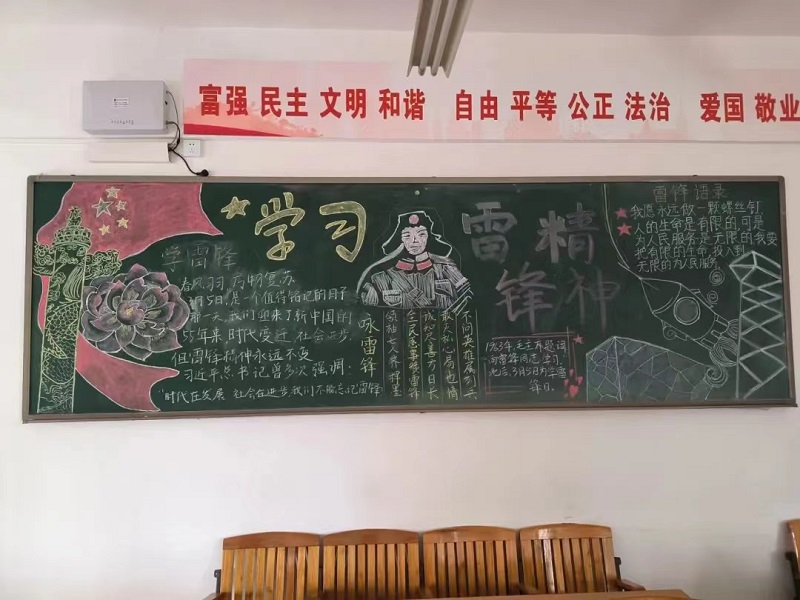 富强 民主 文明 和谐 自由 平等 公正 法治 爱国 敬业
学习
雷锋
精神
学雷锋
春风羽 万物复苏
3月5日,是一个值得铭记的日子
那一天,我们迎来了新中国的
55年来,时代变迁 社会进步,
但雷锋精神永远不变
习近平总书记曾多次强调:
"时代在发展 社会在进步,我们不能忘记雷锋
咏雷锋
不问英雄属列兵
敢
尽善方日长
全民
领袖七人
1963年,毛主席题词
向雷锋同志 学习
此后,3月5日为学雷
锋日。
雷锋语录
我愿永远做一颗螺丝钉
人的生命是有限的可是
为人民服务是无限的我要
把有限的生命 投入到
无限的为人民服务